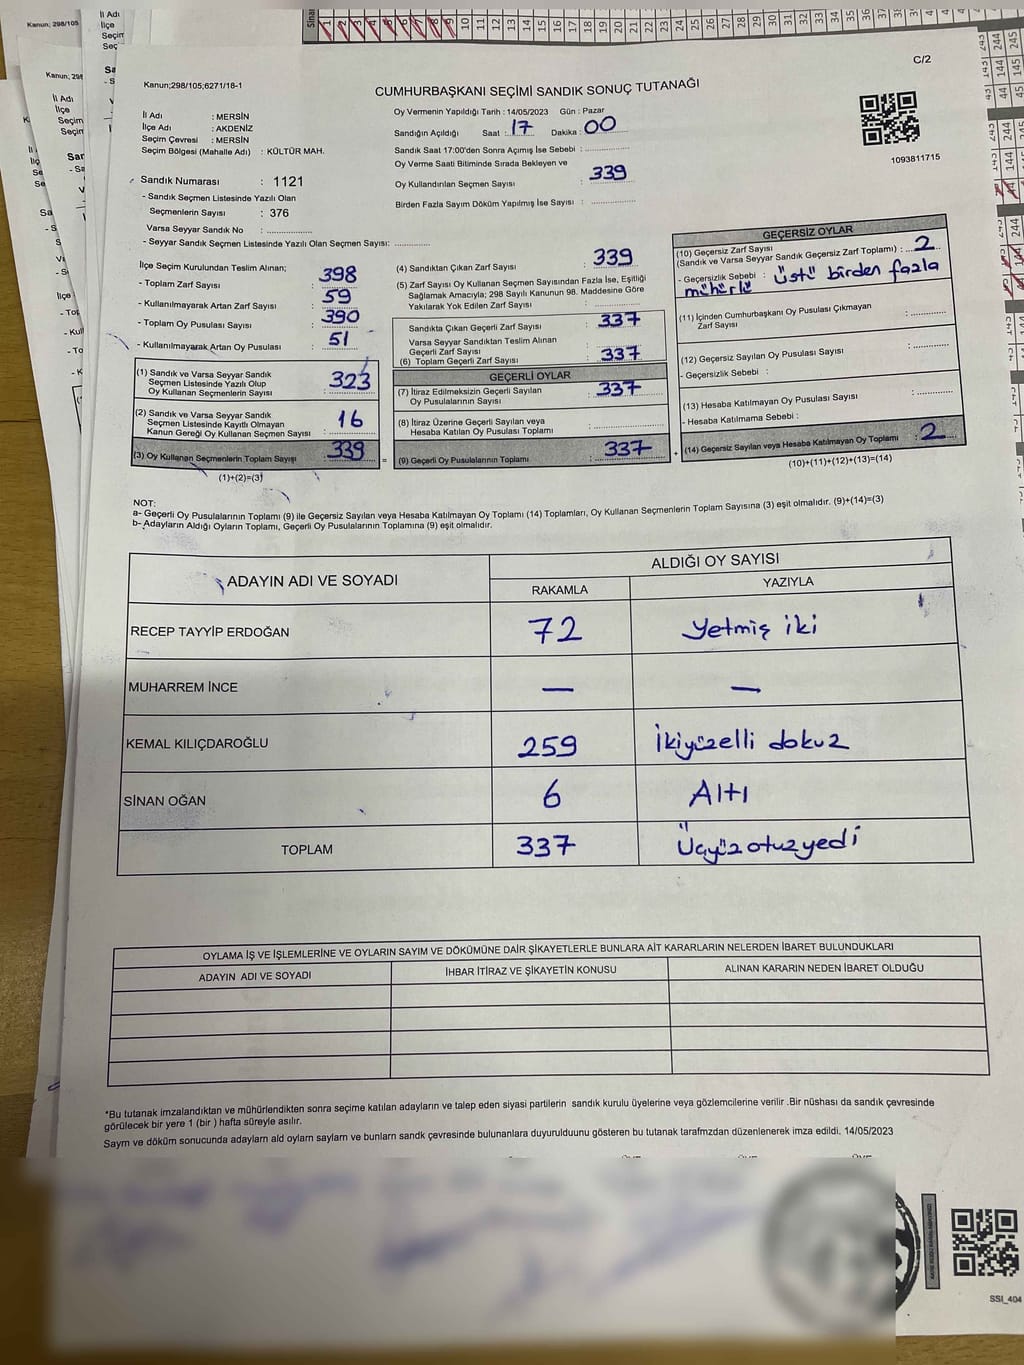 C/2
Kanun;298/105;6271/18-1
CUMHURBAŞKANI SEÇİMİ SANDIK SONUÇ TUTANAĞI
İl Adı : MERSİN
İlçe Adı : AKDENİZ
Seçim Çevresi : MERSİN
Seçim Bölgesi (Mahalle Adı) : KÜLTÜR MAH.
Oy Vermenin Yapıldığı Tarih : 14/05/2023 Gün : Pazar
Sandığın Açıldığı Saat : 17 Dakika : 00
Sandık Saat 17:00'den Sonra Açımış İse Sebebi :
Oy Verme Saati Bitiminde Sırada Bekleyen ve
Oy Kullandırılan Seçmen Sayısı : 339
Birden Fazla Sayım Döküm Yapılmış İse Sayısı :
1093811715
Sandık Numarası : 1121
- Sandık Seçmen Listesinde Yazılı Olan
Seçmenlerin Sayısı : 376
Varsa Seyyar Sandık No :
- Seyyar Sandık Seçmen Listesinde Yazılı Olan Seçmen Sayısı:
İlçe Seçim Kurulundan Teslim Alınan;
- Toplam Zarf Sayısı : 398
- Kullanılmayarak Artan Zarf Sayısı : 59
- Toplam Oy Pusulası Sayısı : 390
- Kullanılmayarak Artan Oy Pusulası : 51
(1) Sandık ve Varsa Seyyar Sandık
Seçmen Listesinde Yazılı Olup
Oy Kullanan Seçmenlerin Sayısı : 323
(2) Sandık ve Varsa Seyyar Sandık
Seçmen Listesinde Kayıtlı Olmayan
Kanun Gereği Oy Kullanan Seçmen Sayısı : 16
(3) Oy Kullanan Seçmenlerin Toplam Sayışı : 339
(1)+(2)=(3)
(4) Sandıktan Çıkan Zarf Sayısı : 339
(5) Zarf Sayısı Oy Kullanan Seçmen Sayısından Fazla İse, Eşitliği
Sağlamak Amacıyla; 298 Sayılı Kanunun 98. Maddesine Göre
Yakılarak Yok Edilen Zarf Sayısı :
Sandıkta Çıkan Geçerli Zarf Sayısı : 337
Varsa Seyyar Sandıktan Teslim Alınan
Geçerli Zarf Sayısı :
(6) Toplam Geçerli Zarf Sayısı : 337
GEÇERLİ OYLAR
(7) İtiraz Edilmeksizin Geçerli Sayılan
Oy Pusulalarının Sayısı : 337
(8) İtiraz Üzerine Geçerli Sayılan veya
Hesaba Katılan Oy Pusulası Toplamı :
(9) Geçerli Oy Pusulalarının Toplamı : 337
GEÇERSİZ OYLAR
(10) Geçersiz Zarf Sayısı
(Sandık ve Varsa Seyyar Sandık Geçersiz Zarf Toplamı) : 2
- Geçersizlik Sebebi : üstü birden fazla
mühürlü
(11) İçinden Cumhurbaşkanı Oy Pusulası Çıkmayan
Zarf Sayısı :
(12) Geçersiz Sayılan Oy Pusulası Sayısı :
- Geçersizlik Sebebi :
(13) Hesaba Katılmayan Oy Pusulası Sayısı :
- Hesaba Katılmama Sebebi :
(14) Geçersiz Sayılan veya Hesaba Katılmayan Oy Toplamı : 2
(10)+(11)+(12)+(13)=(14)
NOT:
a- Geçerli Oy Pusulalarının Toplamı (9) ile Geçersiz Sayılan veya Hesaba Katılmayan Oy Toplamı (14) Toplamları, Oy Kullanan Seçmenlerin Toplam Sayısına (3) eşit olmalıdır. (9)+(14)=(3)
b- Adayların Aldığı Oyların Toplamı, Geçerli Oy Pusulalarının Toplamına (9) eşit olmalıdır.
ADAYIN ADI VE SOYADI
ALDIĞI OY SAYISI
RAKAMLA YAZIYLA
RECEP TAYYİP ERDOĞAN 72 Yetmiş iki
MUHARREM İNCE — —
KEMAL KILIÇDAROĞLU 259 İkiyüzelli dokuz
SİNAN OĞAN 6 Altı
TOPLAM 337 Üçyüz otuz yedi
OYLAMA İŞ VE İŞLEMLERİNE VE OYLARIN SAYIM VE DÖKÜMÜNE DAİR ŞİKAYETLERLE BUNLARA AİT KARARLARIN NELERDEN İBARET BULUNDUKLARI
ADAYIN ADI VE SOYADI İHBAR İTİRAZ VE ŞİKAYETİN KONUSU ALINAN KARARIN NEDEN İBARET OLDUĞU
*Bu tutanak imzalandıktan ve mühürlendikten sonra seçime katılan adayların ve talep eden siyasi partilerin sandık kurulu üyelerine veya gözlemcilerine verilir .Bir nüshası da sandık çevresinde
görülecek bir yere 1 (bir ) hafta süreyle asılır.
Sayım ve döküm sonucunda adayların ald oyların sayıları ve bunların sandk çevresinde bulunanlara duyurulduunu gösteren bu tutanak tarafmzdan düzenlenerek imza edildi. 14/05/2023
SSI_404